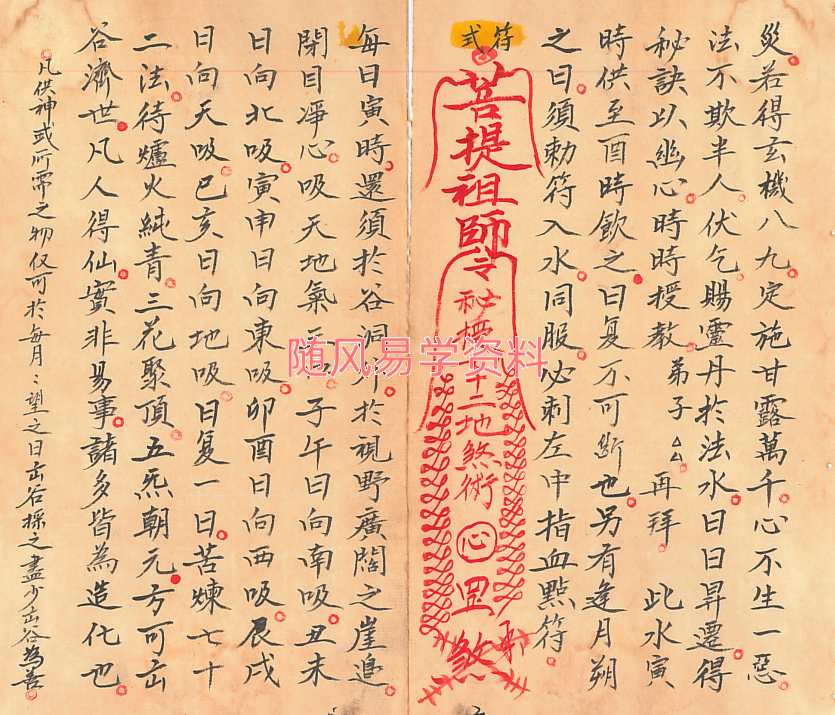 災若得玄機八九定施甘露萬千心不生一惡
法不欺半人伏乞賜靈丹於法水日日昇遷得
秘訣以幽心時時授教弟子△△再拜 此水寅
時供至酉時飲之日复不可斷也另有逢月朔
之日須勅符入水同服必刺左中指血點符
符式
菩提祖師令
秘授十二地煞術
心
煞
每日寅時還須於谷洞 於視野廣闊之崖邊
閉目凈心吸天地氣 子午日向南吸丑未
日向北吸寅申日向東吸卯酉日向西吸辰戌
日向天吸巳亥日向地吸日复一日苦煉七十
二法待爐火純青三花聚頂五炁朝元方可出
谷濟世凡人得仙實非易事諸多皆為造化也
凡供神或所需之物仅可於每月:望之日出谷採之盡少出谷為善
随风易学资料